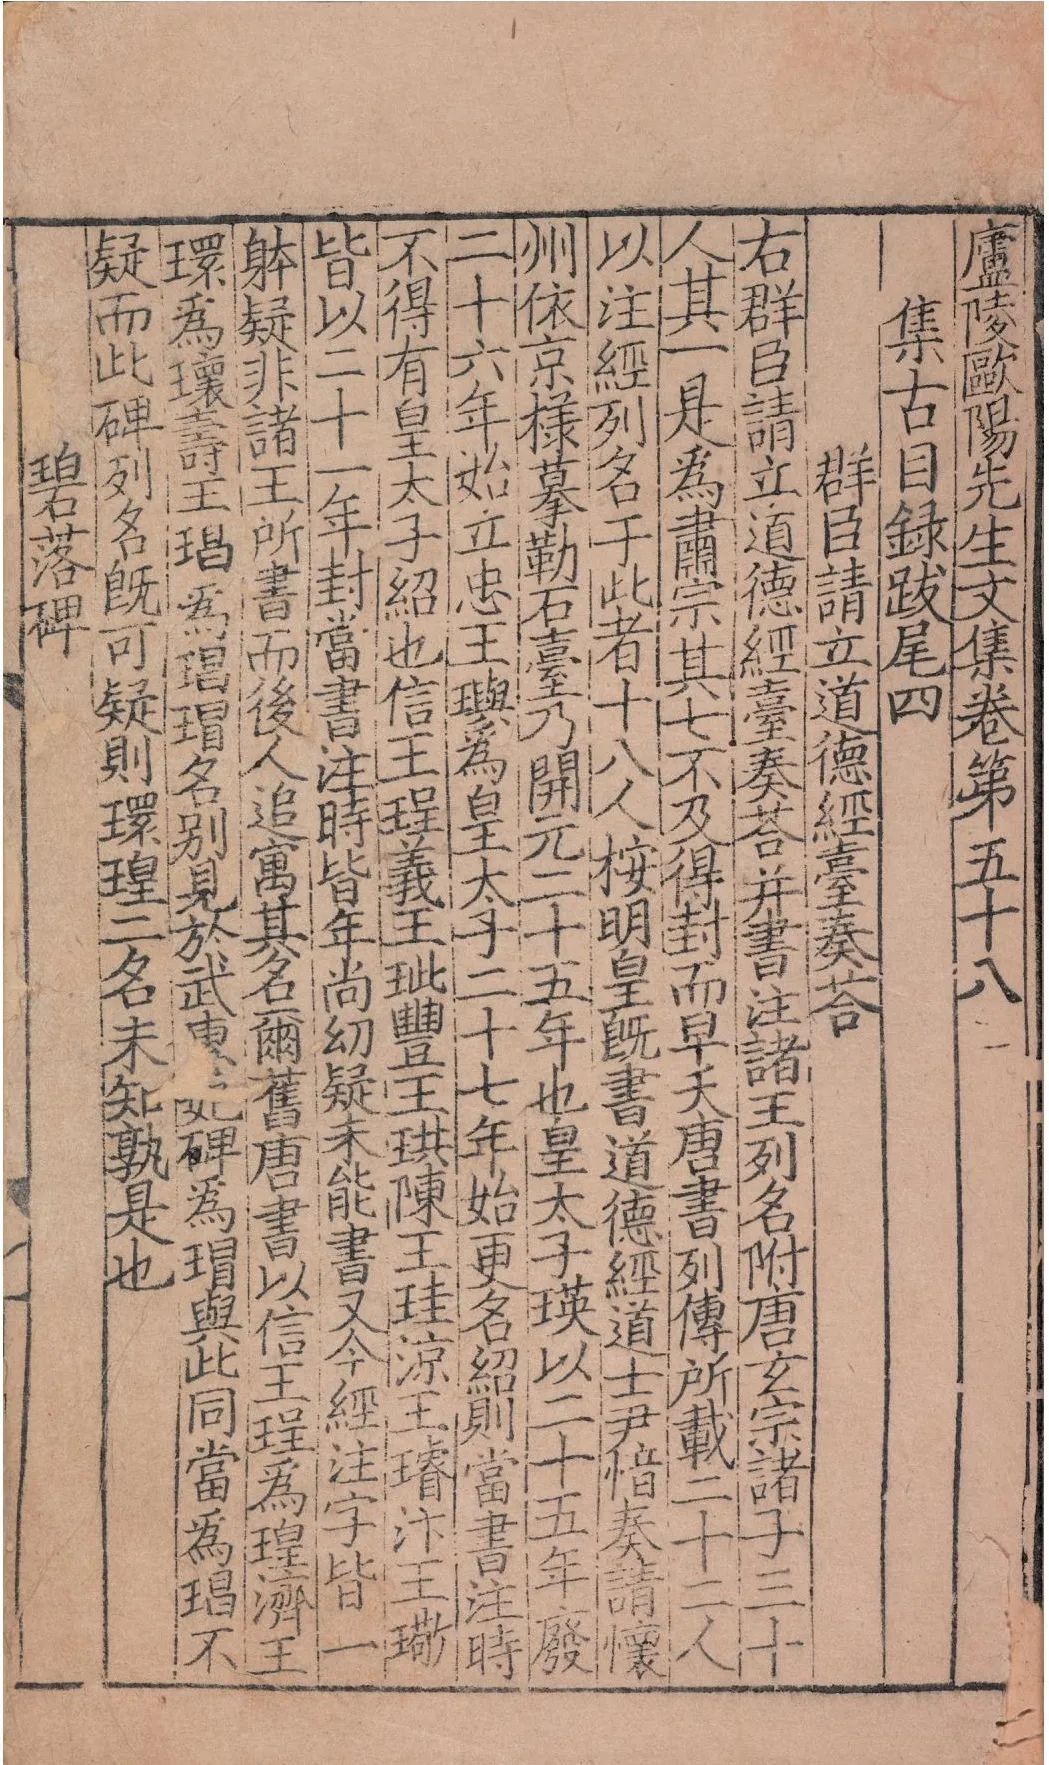 廬陵歐陽先生文集卷第五十八
集古目録跋尾四
群臣請立道德經臺奏荅
右群臣請立道德經臺奏荅并書注諸王列名附唐玄宗諸子三十
人其一是爲肅宗其七不及得封而早夭唐書列傳所載二十二人
以注經列名于此者十八人桉明皇旣書道德經道士尹愔奏請懷
州依京樣摹勒石臺乃開元二十五年也皇太子瑛以二十五年廢
二十六年始立忠王璵爲皇太子二十七年始更名紹則當書注時
不得有皇太子紹也信王珵義王玼豐王珙陳王珪涼王璿汴王璥
皆以二十一年封當書注時皆年尚幼疑未能書又今經注字皆一
躰疑非諸王所書而後人追寓其名爾舊唐書以信王珵爲瑝濟王
環爲瓌壽王琩爲瑁瑁名别見於武妃碑爲瑁與此同當爲琩不
疑而此碑列名旣可疑則環瑝二名未知孰是也
碧落碑